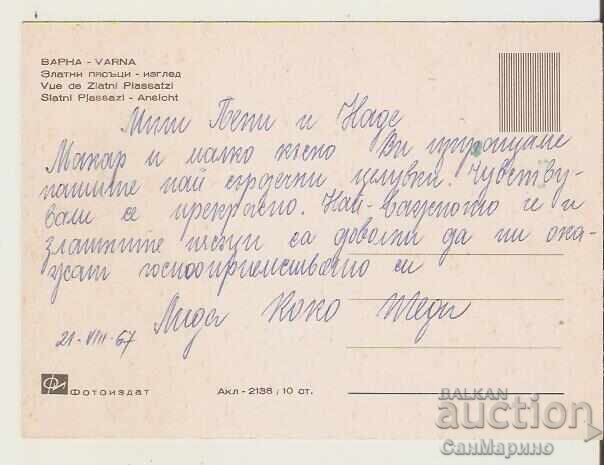 ВАРНА - VARNA
Златни пясъци - изглед
Vue de Zlatni Piassatzi
Slatni Pjassazi - Ansicht
Мили Пепи и Наде
Макар и малко късно Ви изпращаме
нашите най сърдечни целувки. Чувству-
вали се прекрасно. Най-важното че и
златните пясъци са доволни да ни ока-
жат гостоприемството си
Лида Коко Теди
21-VIII-67
Фотоиздат
Акл - 2138 / 10 ст.
BALKAN
auction
СанМарино